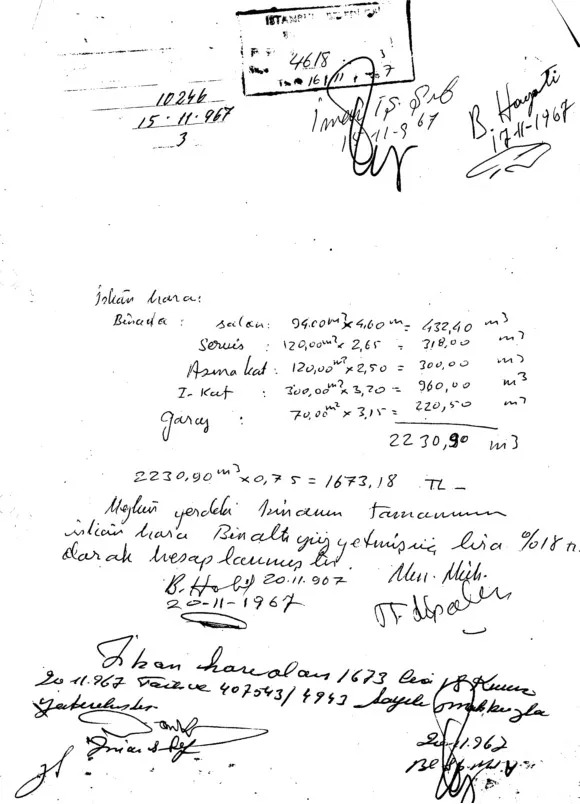 İSTANBUL
4618
16/11
10246
15.11.967
3
B. Hayati
17-11-1967
İskân harcı:
Binada : salon: 94.00m²x4,60 m = 432,40 m³
Servis : 120,00m²x 2,65 = 318,00 m³
Asma kat : 120,00m²x 2,50 = 300,00 m³
I. Kat : 300,00m²x 3,20 = 960,00 m³
Garaj : 70,00m² x 3,15 = 220,50 m³
2230,90 m3
2230,90 m³x0,75 = 1673,18 TL
yerdeki binanın tamamının
iskân harcı Binaltıyüzyetmişüç lira %18
olarak hesaplanmıştır.
20.11.967
20-11-1967
İskan harcı olan 1673 lira 18 Kuruş
20.11.967 Tarih ve 407543/4943 Sayılı makbuzla
yatırılmıştır
20.11.967